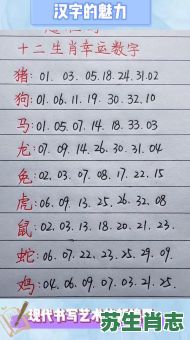 汉字的魅力
十二生肖幸运数字
猪:01.03.05.18.24.31.02
狗:01.06.11.19.30.32.10
马:01.05.07.14.18.33.03
龙:07.09.14.26.30.31.04
兔:02.03.07.08.17.22.15
虎:06.09.13.25.26.32.08
鼠:02.03.13.18.20.21.23
蛇:06.07.22.23.25.29.09
鸡:04.06.09.07.03.21.25
现代书写艺术
苏生肖志